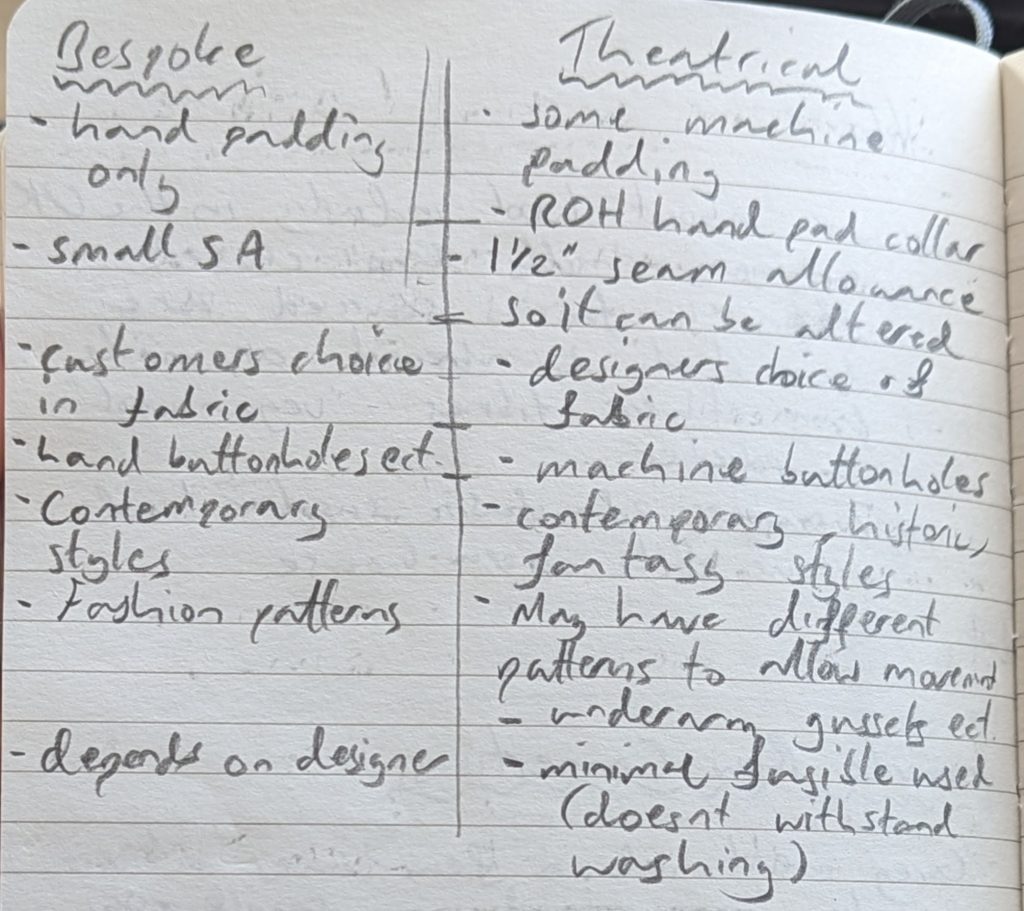 Bespoke
- hand padding
only
- small SA
- customers choice
in fabric
- hand buttonholes ect.
- Contemporary
styles
- Fashion patterns
- depends on designer
Theatrical
- some machine
padding
- ROH hand pad collar
- 1 1/2" seam allowance
so it can be altered
- designers choice of
fabric
- machine buttonholes
- contemporary, historic,
fantasy styles
- May have different
patterns to allow movement
- underarm gussets ect.
- minimal fusible used
(doesnt withstand
washing)